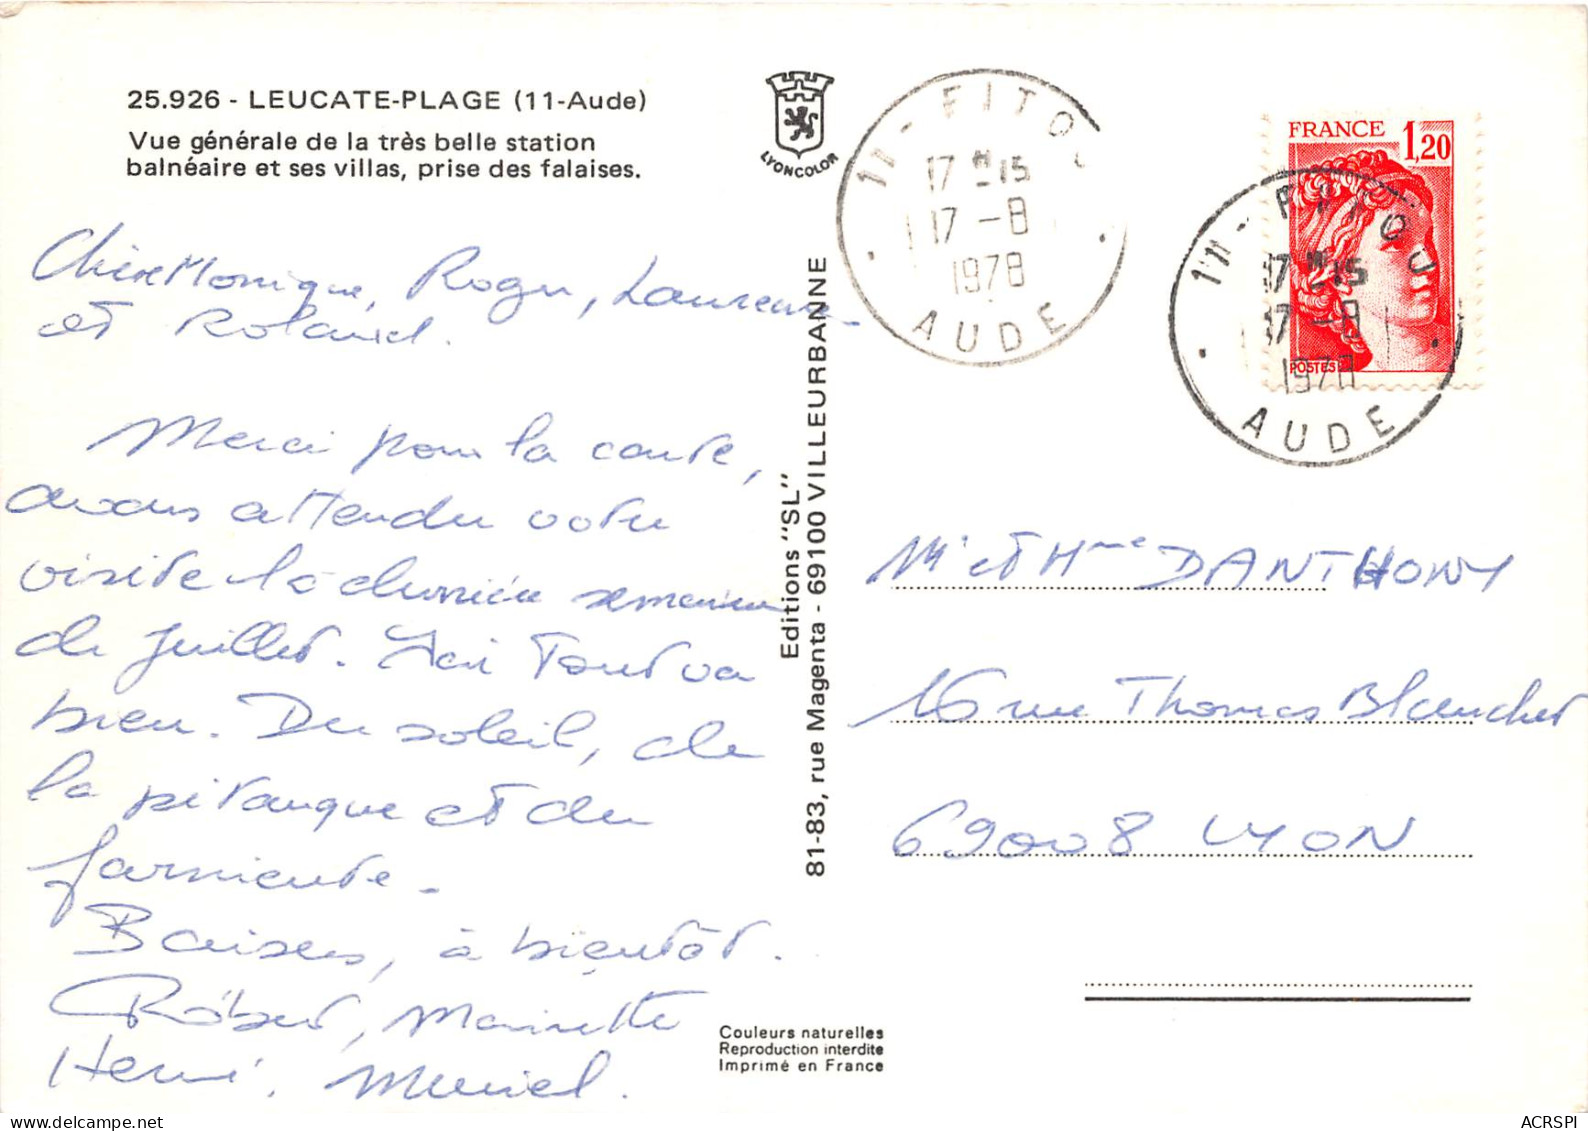 25.926 - LEUCATE-PLAGE (11-Aude)
Vue générale de la très belle station
balnéaire et ses villas, prise des falaises.
Chère Monique, Roger, Laurence
et Roland.
Merci pour la carte,
avons attendu votre
visite la dernière semaine
de juillet. Ici tout va
bien. Du soleil, de
la pétanque et du
farniente.
Baisers, à bientôt.
Robert, Mariette
Hervé, Muriel.
LYONCOLOR
Editions "SL"
81-83, rue Magenta - 69100 VILLEURBANNE
Couleurs naturelles
Reproduction interdite
Imprimé en France
11 - FITOU
17 H 15
17 - 8
1978
AUDE
FRANCE 1,20
POSTES
11 - FITOU
17 H 15
17 - 8
1978
AUDE
Mr et Mme DANTHONY
16 rue Thomas Blanchet
69008 LYON
ACRSPI